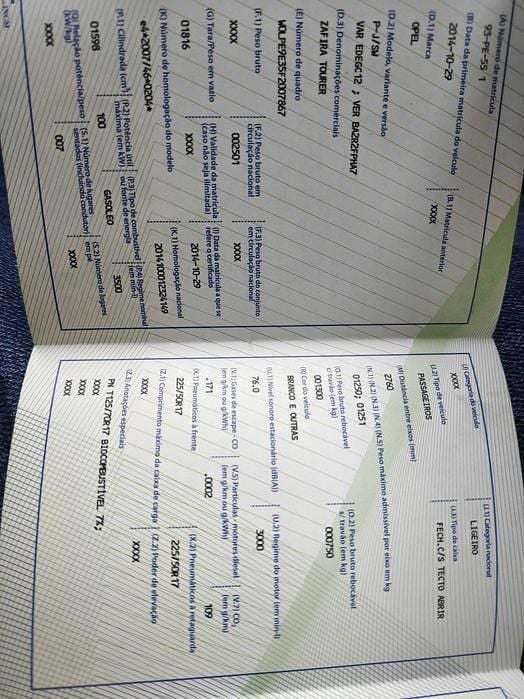 (A) Número de matrícula
93-PE-55 1
(B) Data da primeira matrícula do veículo
2014-10-29
(B.1) Matrícula anterior
XXXX
(D.1) Marca
OPEL
(D.2) Modelo, variante e versão
P-J/SW
VAR EDE6C12 ; VER BA2R2FPHA7
(D.3) Denominações comerciais
ZAFIRA TOURER
(E) Número de quadro
W0LPE9E35F2007867
(F.1) Peso bruto
XXXX
(F.2) Peso bruto em circulação nacional
002501
(F.3) Peso bruto do conjunto em circulação nacional
XXXX
(G) Tara/Peso em vazio
01816
(H) Validade da matrícula (caso não seja ilimitada)
XXXX
(I) Data da matrícula a que se refere o certificado
2014-10-29
(K) Número de homologação do modelo
e4*2007/46*0204*
(K.1) Homologação nacional
2014100012324149
(P.1) Cilindrada (cm³)
01598
(P.2) Potência útil máxima (em kW)
100
(P.3) Tipo de combustível ou fonte de energia
GASOLEO
(P.4) Regime nominal (em min-l)
3500
(Q) Relação potência/peso (kW/kg)
XXXX
(S.1) Número de lugares sentados (incluindo condutor)
007
(S.2) Número de lugares em pé
XXXX
INCM
(J) Categoria do veículo
XXXX
(J.1) Categoria nacional
LIGEIRO
(J.2) Tipo de veículo
PASSAGEIROS
(J.3) Tipo de caixa
FECH.C/S TECTO ABRIR
(M) Distância entre eixos (mm)
2760
(N.1) (N.2) (N.3) (N.4) (N.5) Peso máximo admissível por eixo em kg
01250; 01251
(O.1) Peso bruto rebocável c/ travão (em kg)
001300
(O.2) Peso bruto rebocável s/ travão (em kg)
000750
(R) Cor do veículo
BRANCO E OUTRAS
(U.1) Nível sonoro estacionário (dB(A))
76.0
(U.2) Regime do motor (em min-l)
3000
(V.1) Gases de escape - CO (em g/km ou g/kWh)
.171
(V.5) Partículas - motores diesel (em g/km ou g/kWh)
.0002
(V.7) CO₂ (em g/km)
109
(X.1) Pneumáticos à frente
225/50R17
(X.2) Pneumáticos à retaguarda
225/50R17
(Z.1) Comprimento máximo da caixa de carga
XXXX
(Z.2) Poder de elevação
XXXX
(Z.3) Anotações especiais
PN T125/70R17 BIOCOMBUSTÍVEL 7%;
XXXX
XXXX
XXXX